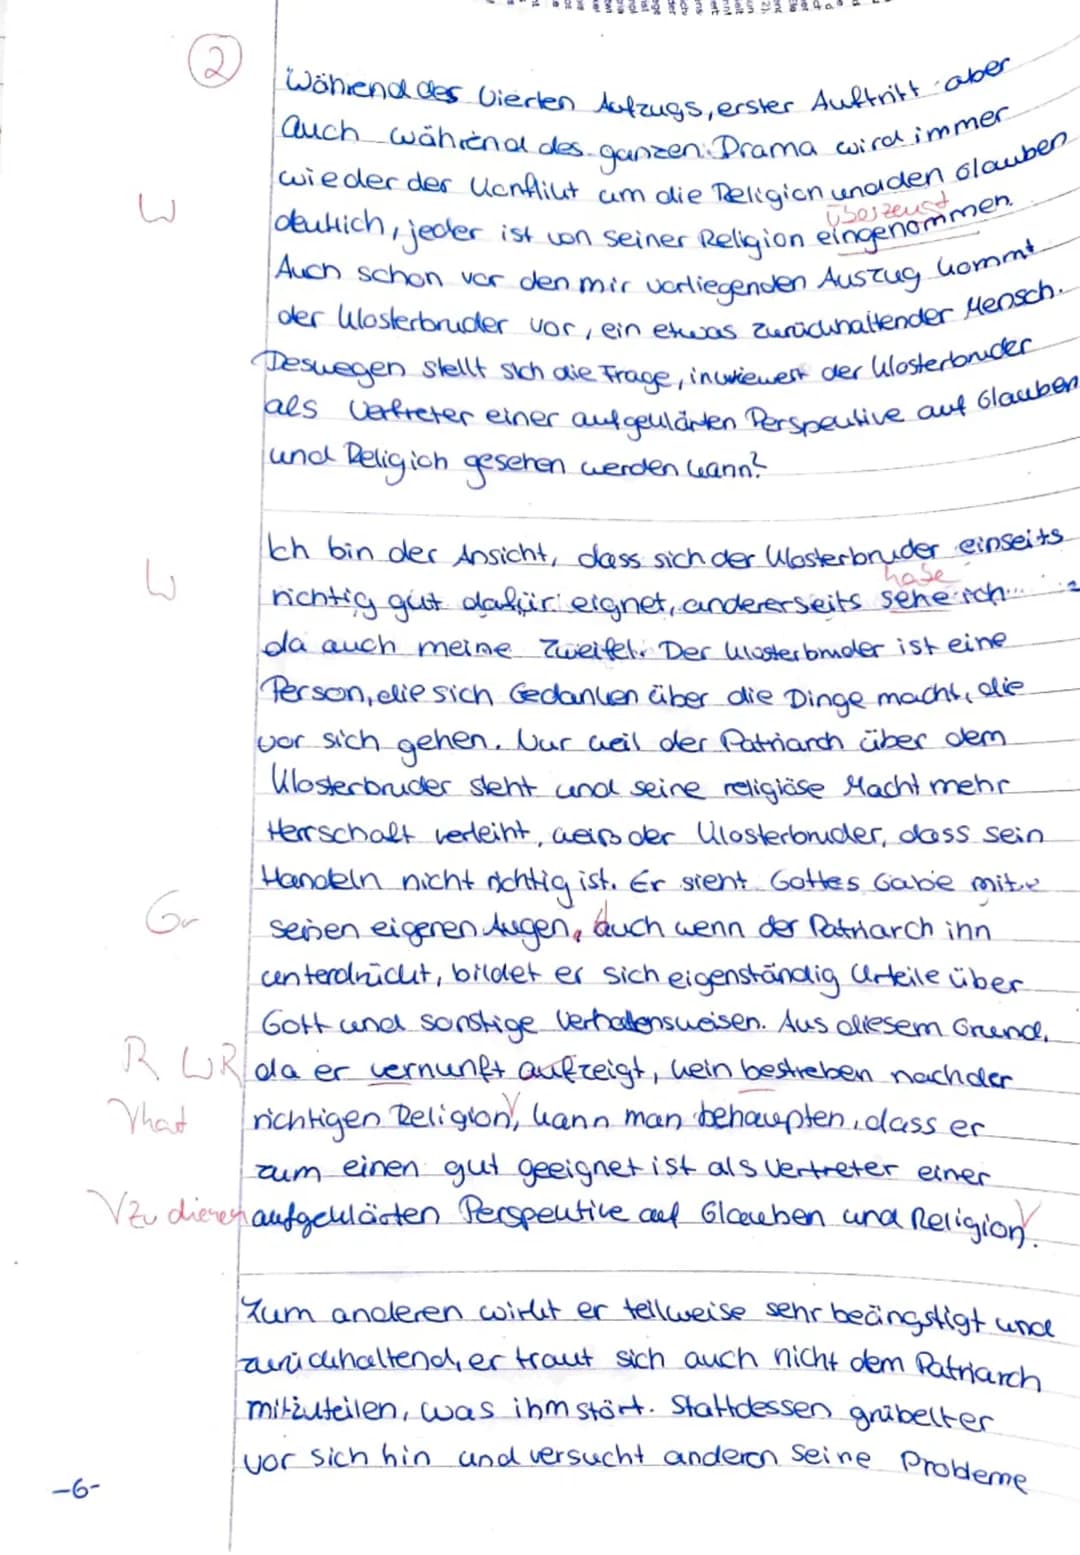 2
Während des vierten Aufzugs, erster Auftritt aber
auch während des ganzen Drama wird immer
wieder der Konflikt um die Religion und den Glauben
W
überzeugt
deutlich, jeder ist von seiner Religion eingenommen.
Auch schon vor den mir vorliegenden Auszug kommt
der Klosterbruder vor, ein etwas zurückhaltender Mensch.
Deswegen stellt sich die Frage, inwieweit der Klosterbruder
als Vertreter einer aufgeklärten Perspektive auf Glauben
und Religion gesehen werden kann?
Ich bin der Ansicht, dass sich der Klosterbruder einseits
W
habe
richtig gut dafür eignet, andererseits sehe ich
da auch meine Zweifel. Der Klosterbruder ist eine
Person, die sich Gedanken über die Dinge macht, die
vor sich gehen. Nur weil der Patriarch über dem
Klosterbruder steht und seine religiöse Macht mehr
Herrschaft verleiht, weiß der Klosterbruder, dass sein
Handeln nicht richtig ist. Er sieht Gottes Gabe mit
Gr
seinen eigenen Augen, auch wenn der Patriarch ihn
unterdrückt, bildet er sich eigenständig Urteile über
Gott und sonstige Verhaltensweisen. Aus diesem Grund,
R WR da er vernunft aufzeigt, kein bestreben nach der
V hat richtigen Religion, kann man behaupten, dass er
zum einen gut geeignet ist als Vertreter einer
V zu dienen aufgeklärten Perspektive auf Glauben und Religion.
Zum anderen wirkt er teilweise sehr beängstigt und
zurückhaltend, er traut sich auch nicht dem Patriarch
mitzuteilen, was ihm stört. Stattdessen grübelt er
vor sich hin und versucht anderen seine Probleme
-6-